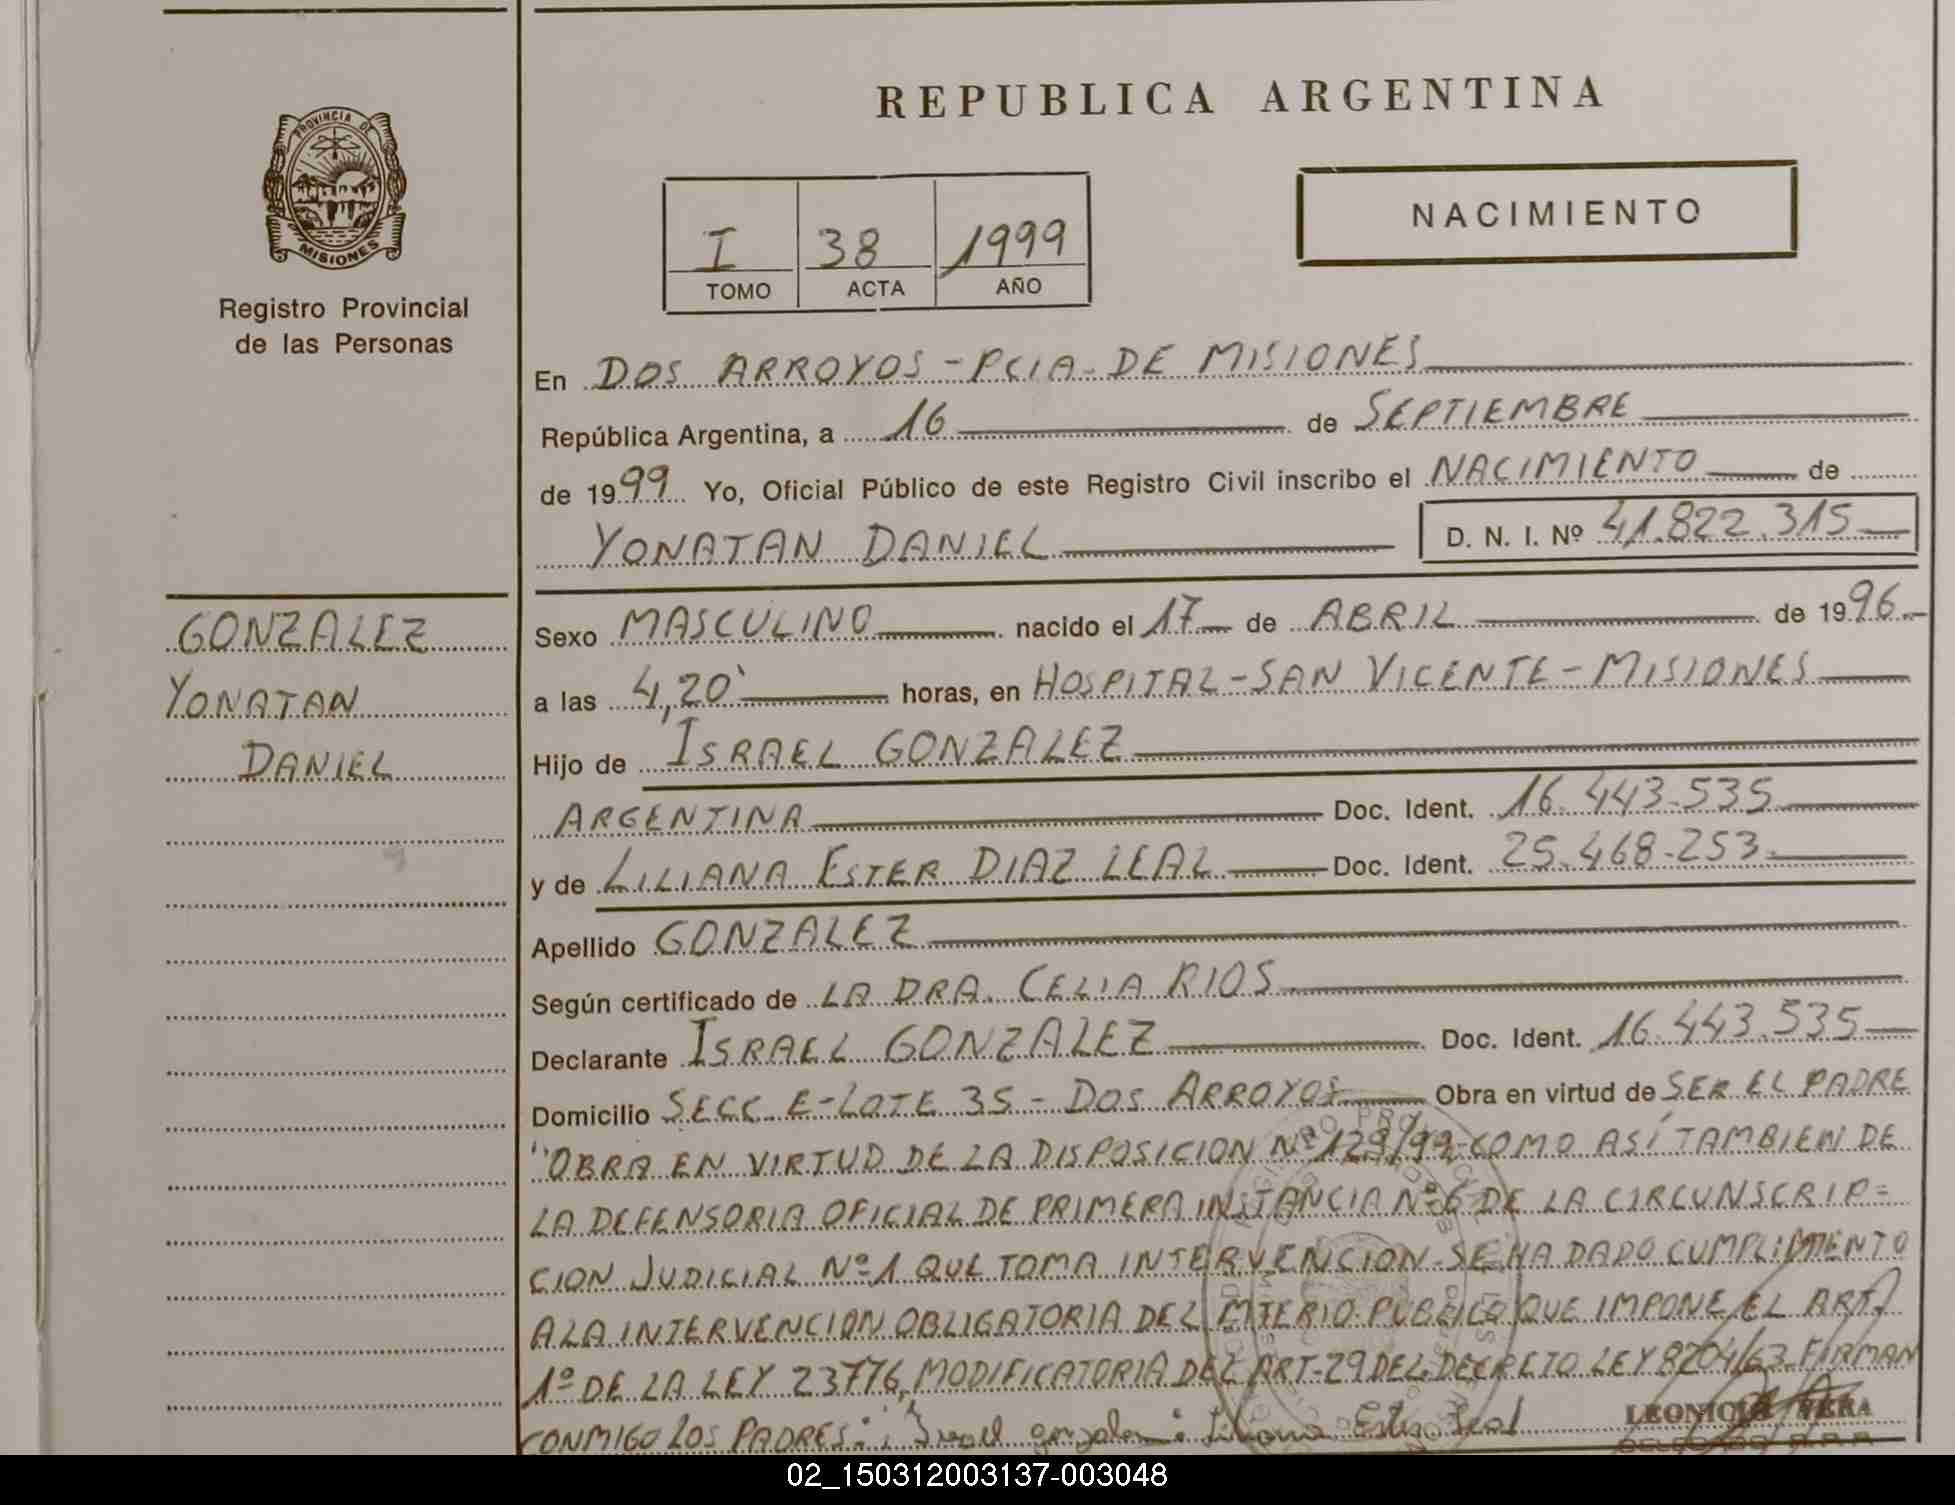 REPUBLICA ARGENTINA
PROVINCIA DE
MISIONES
Registro Provincial
de las Personas
I 38 1999
TOMO ACTA AÑO
NACIMIENTO
En DOS ARROYOS - PCIA- DE MISIONES
República Argentina, a 16 de SEPTIEMBRE
de 1999 Yo, Oficial Público de este Registro Civil inscribo el NACIMIENTO de
YONATAN DANIEL D. N. I. Nº 41.822.315
GONZALEZ
YONATAN
DANIEL
Sexo MASCULINO nacido el 17 de ABRIL de 1996
a las 4,20 horas, en HOSPITAL - SAN VICENTE - MISIONES
Hijo de ISRAEL GONZALEZ
ARGENTINA Doc. Ident. 16.443.535
y de LILIANA ESTER DIAZ LEAL Doc. Ident. 25.468.253
Apellido GONZALEZ
Según certificado de LA DRA. CELIA RIOS
Declarante ISRAEL GONZALEZ Doc. Ident. 16.443.535
Domicilio SECC E-LOTE 35 - DOS ARROYOS Obra en virtud de SER EL PADRE
"OBRA EN VIRTUD DE LA DISPOSICION Nº 129/99 COMO ASÍ TAMBIEN DE
LA DEFENSORIA OFICIAL DE PRIMERA INSTANCIA Nº 6 DE LA CIRCUNSCRIP=
CION JUDICIAL Nº 1 QUE TOMA INTERVENCION-SE HA DADO CUMPLIMIENTO
A LA INTERVENCION OBLIGATORIA DEL MTERIO PUBLICO QUE IMPONE EL ART.
1º DE LA LEY 23776, MODIFICATORIA DEL ART-29 DEL DECRETO LEY 8204/63 FIRMAN
CONMIGO LOS PADRES: Israel gonzalez Liliana Ester Leal LEONICIA VERA
02_150312003137-003048